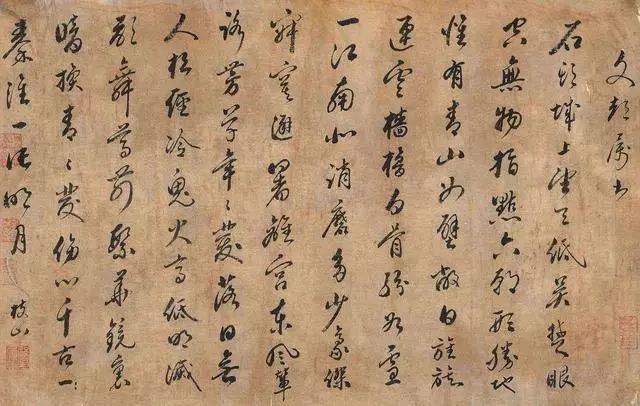 文属書
石頭城上望天低吳楚眼
空無物指點六朝形勝地
惟有青山如壁蔽日旌旗
連雲檣櫓白骨紛如雪
一江南北消磨多少豪傑
寂寞避暑離宮東風輦
路芳草年々發落日無
人松徑冷鬼火高低明滅
歌舞尊前繁華鏡裏
暗換青々髮傷心千古
秦淮一片明月
枝山